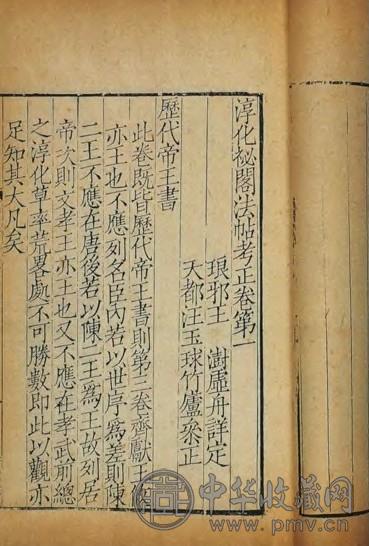 淳化祕閣法帖考正卷第一
琅邪王 澍虛舟詳定
天都汪玉球竹廬叅正
歷代帝王書
此卷既皆歷代帝王書則第三卷齊獻王
亦王也不應列名臣內若以世序爲差則陳
二王不應在唐後若以陳二王爲王故列居
帝次則文孝王亦王也又不應在孝武前總
之淳化草率荒畧處不可勝數即此以觀亦
足知其大凡矣
中华收藏网
www.pmv.cn